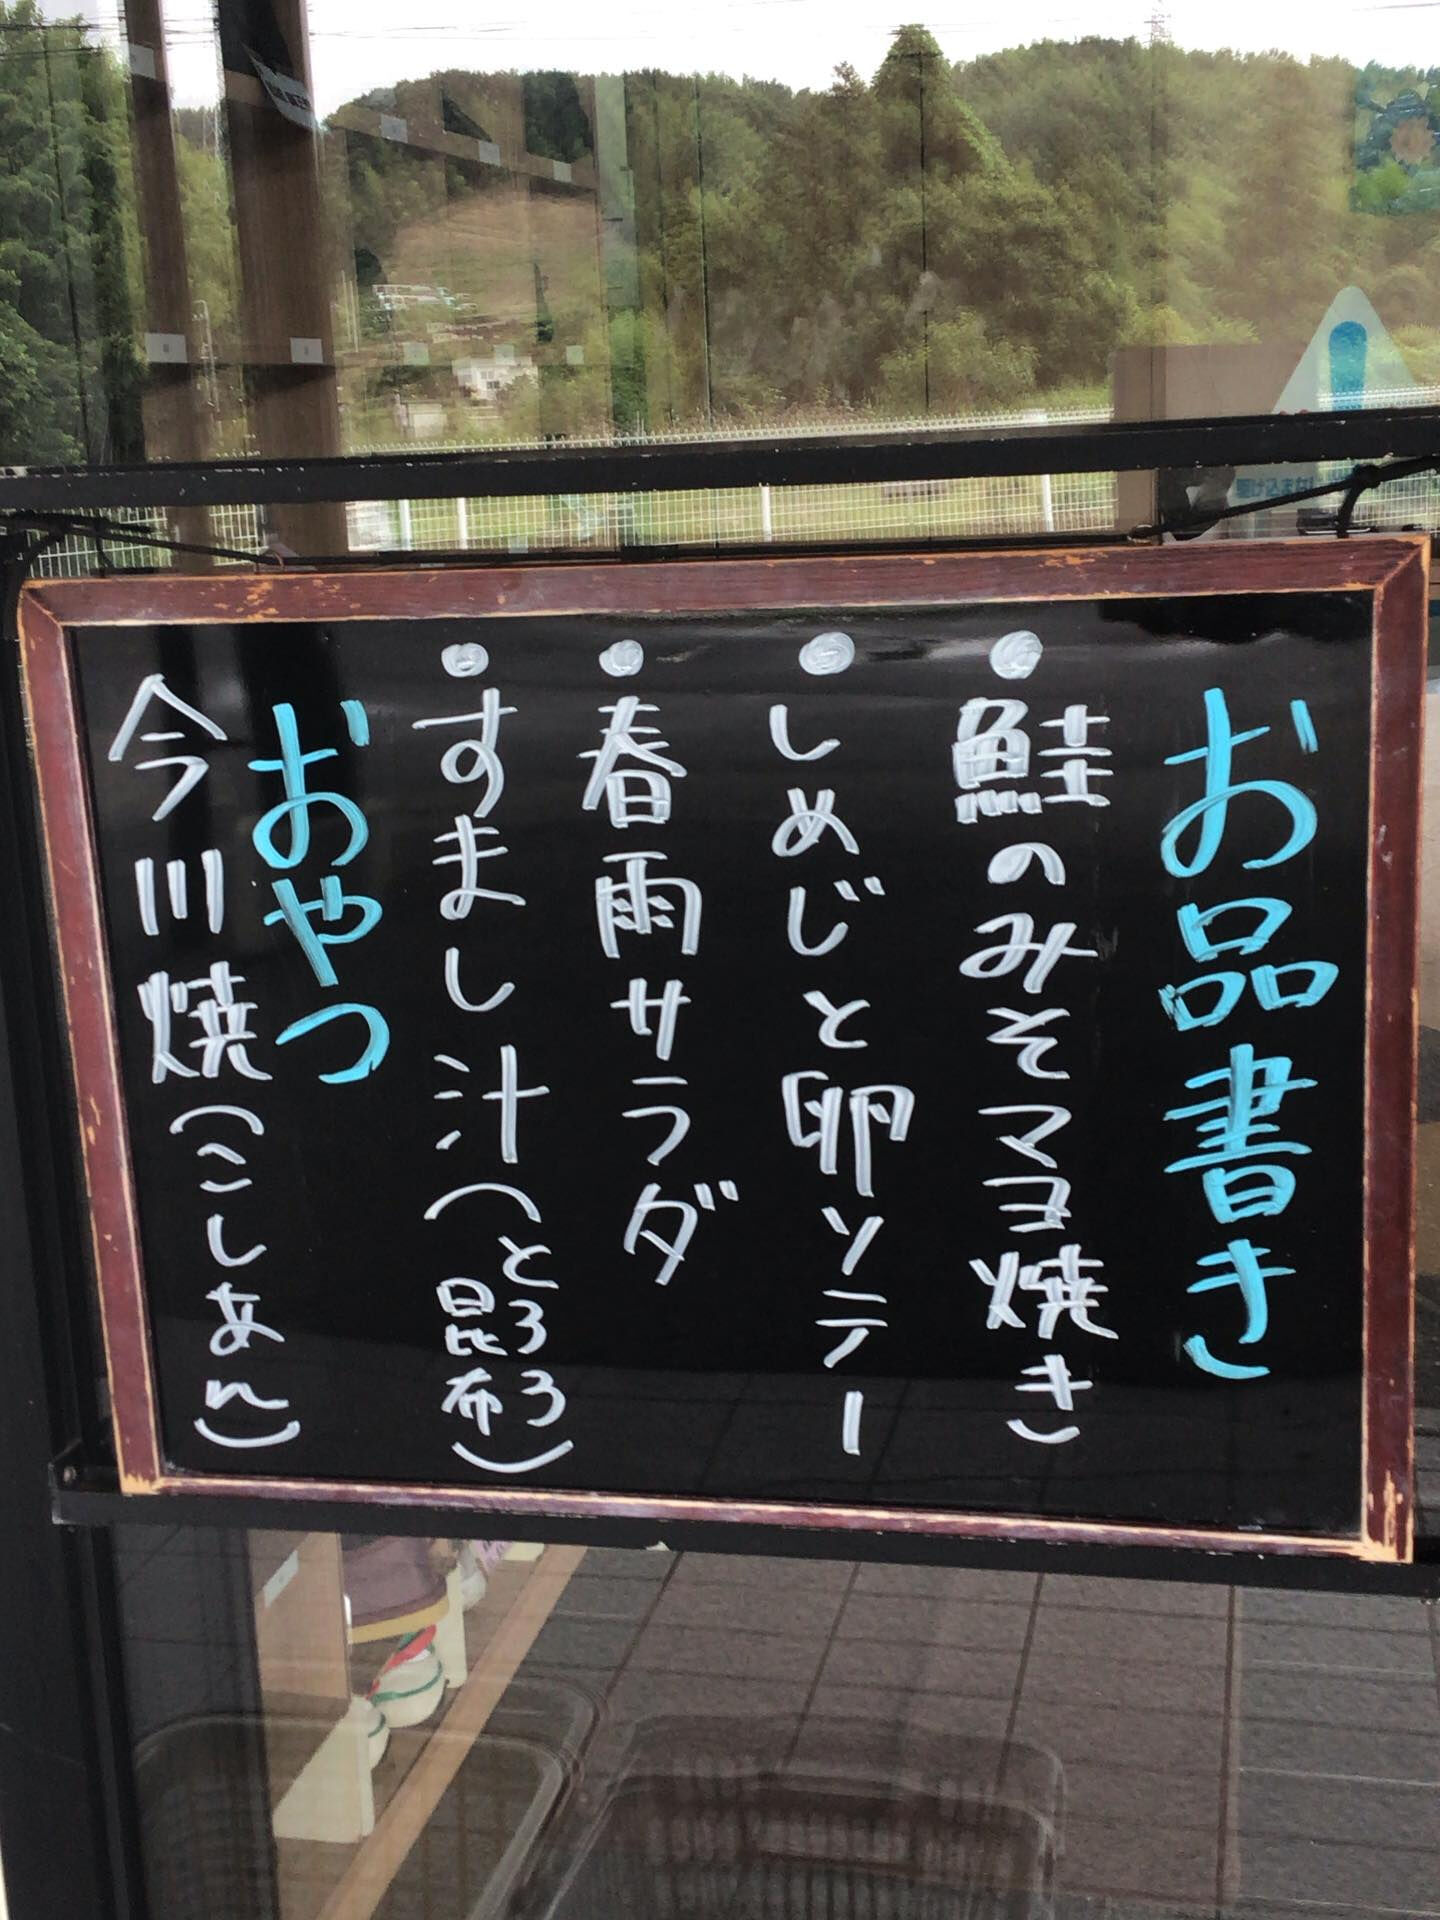 お品書き
●鮭のみそマヨ焼き
●しめじと卵ソテー
●春雨サラダ
●すまし汁(とろろ昆布)
おやつ
今川焼(こしあん)
駆け込まない